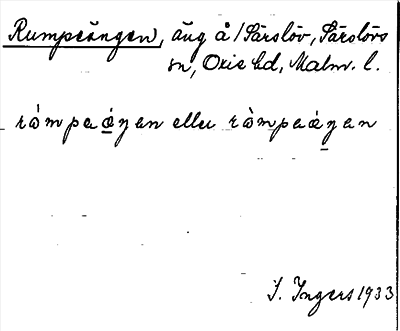 Rumpeängen, äng å 1 Särslöv, Särslövs
sn, Oxie hd, Malm. l.
ròmpaæ̀ŋan eller ròmpaæ̀ŋan
I. Ingers 1933